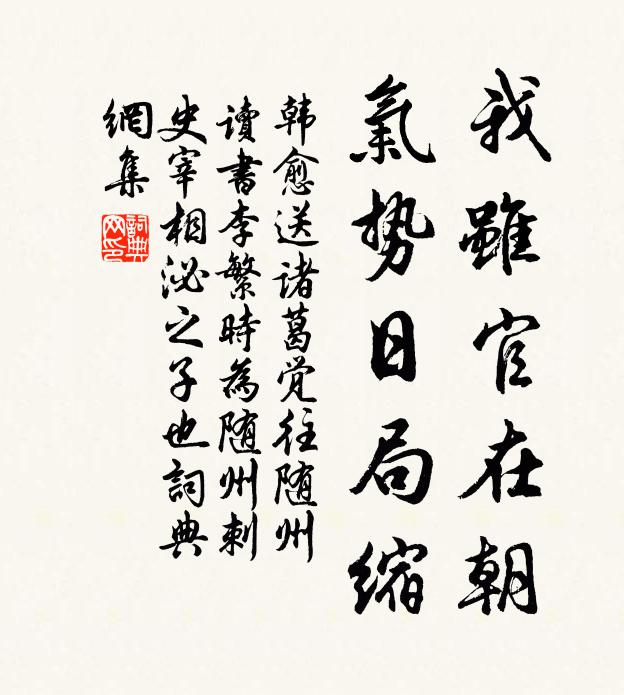 我雖官在朝
氣势日局缩
韩愈送诸葛觉往随州
讀書李繁時為随州刺
史宰相泌之子也詞典
網集
詞典
网印